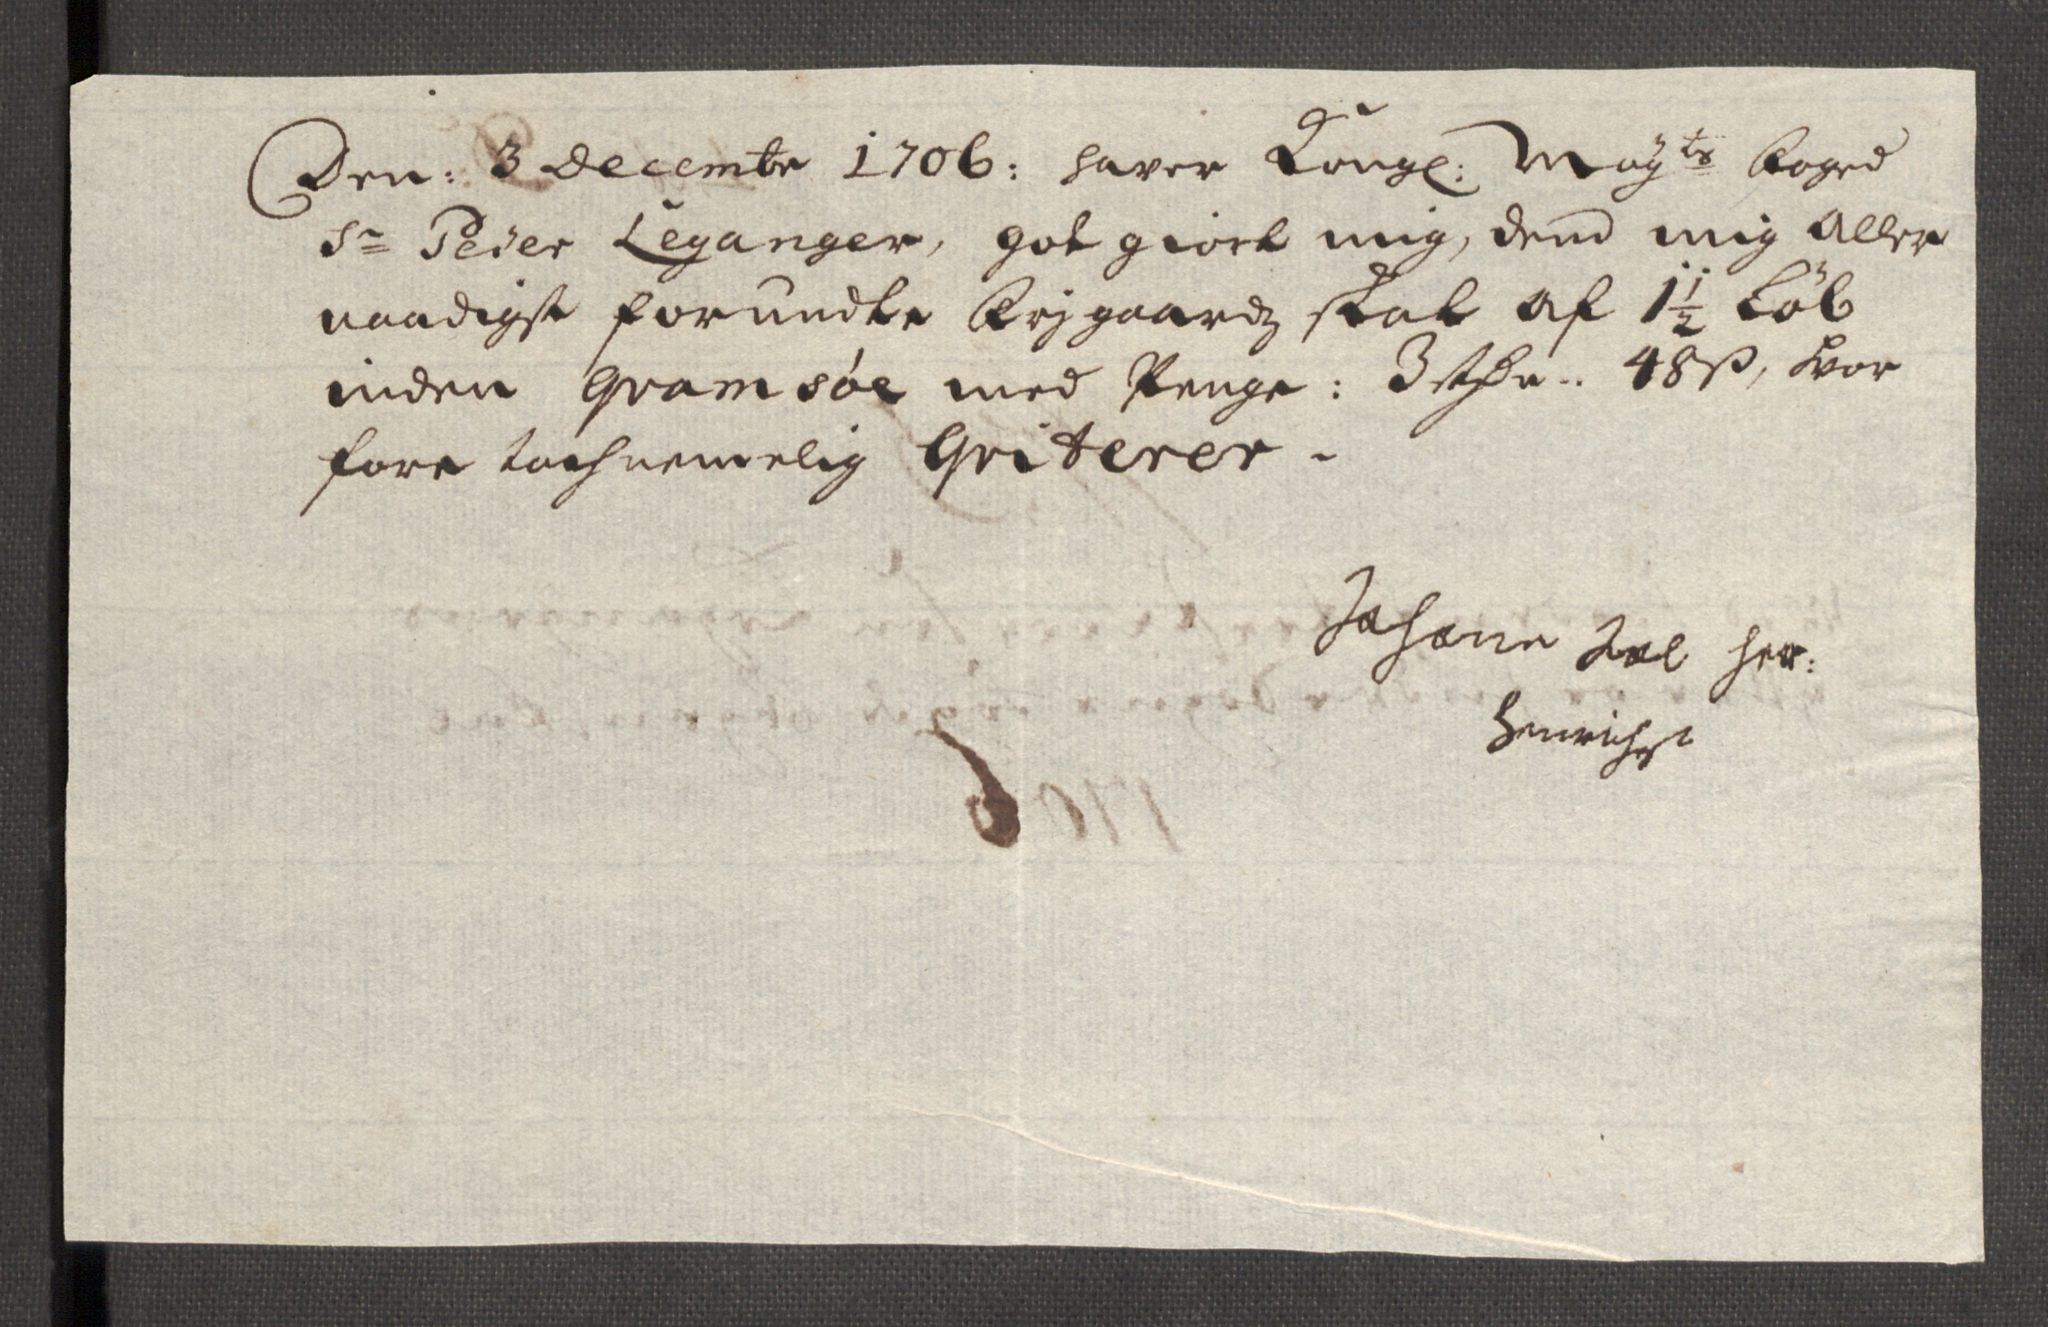 Den: 3 Decembr 1706: haver Kongl: Mayts Foged
Sr Peder Leganger, got giort mig, dend mig aller
naadigst forundte frj gaardz skat af 1½ Løb
inden qvamsøe med Penge: 3 rdr.. 48ß, hvor
fore tachnemelig qviterer -
Johane Sal her:
Henrichs